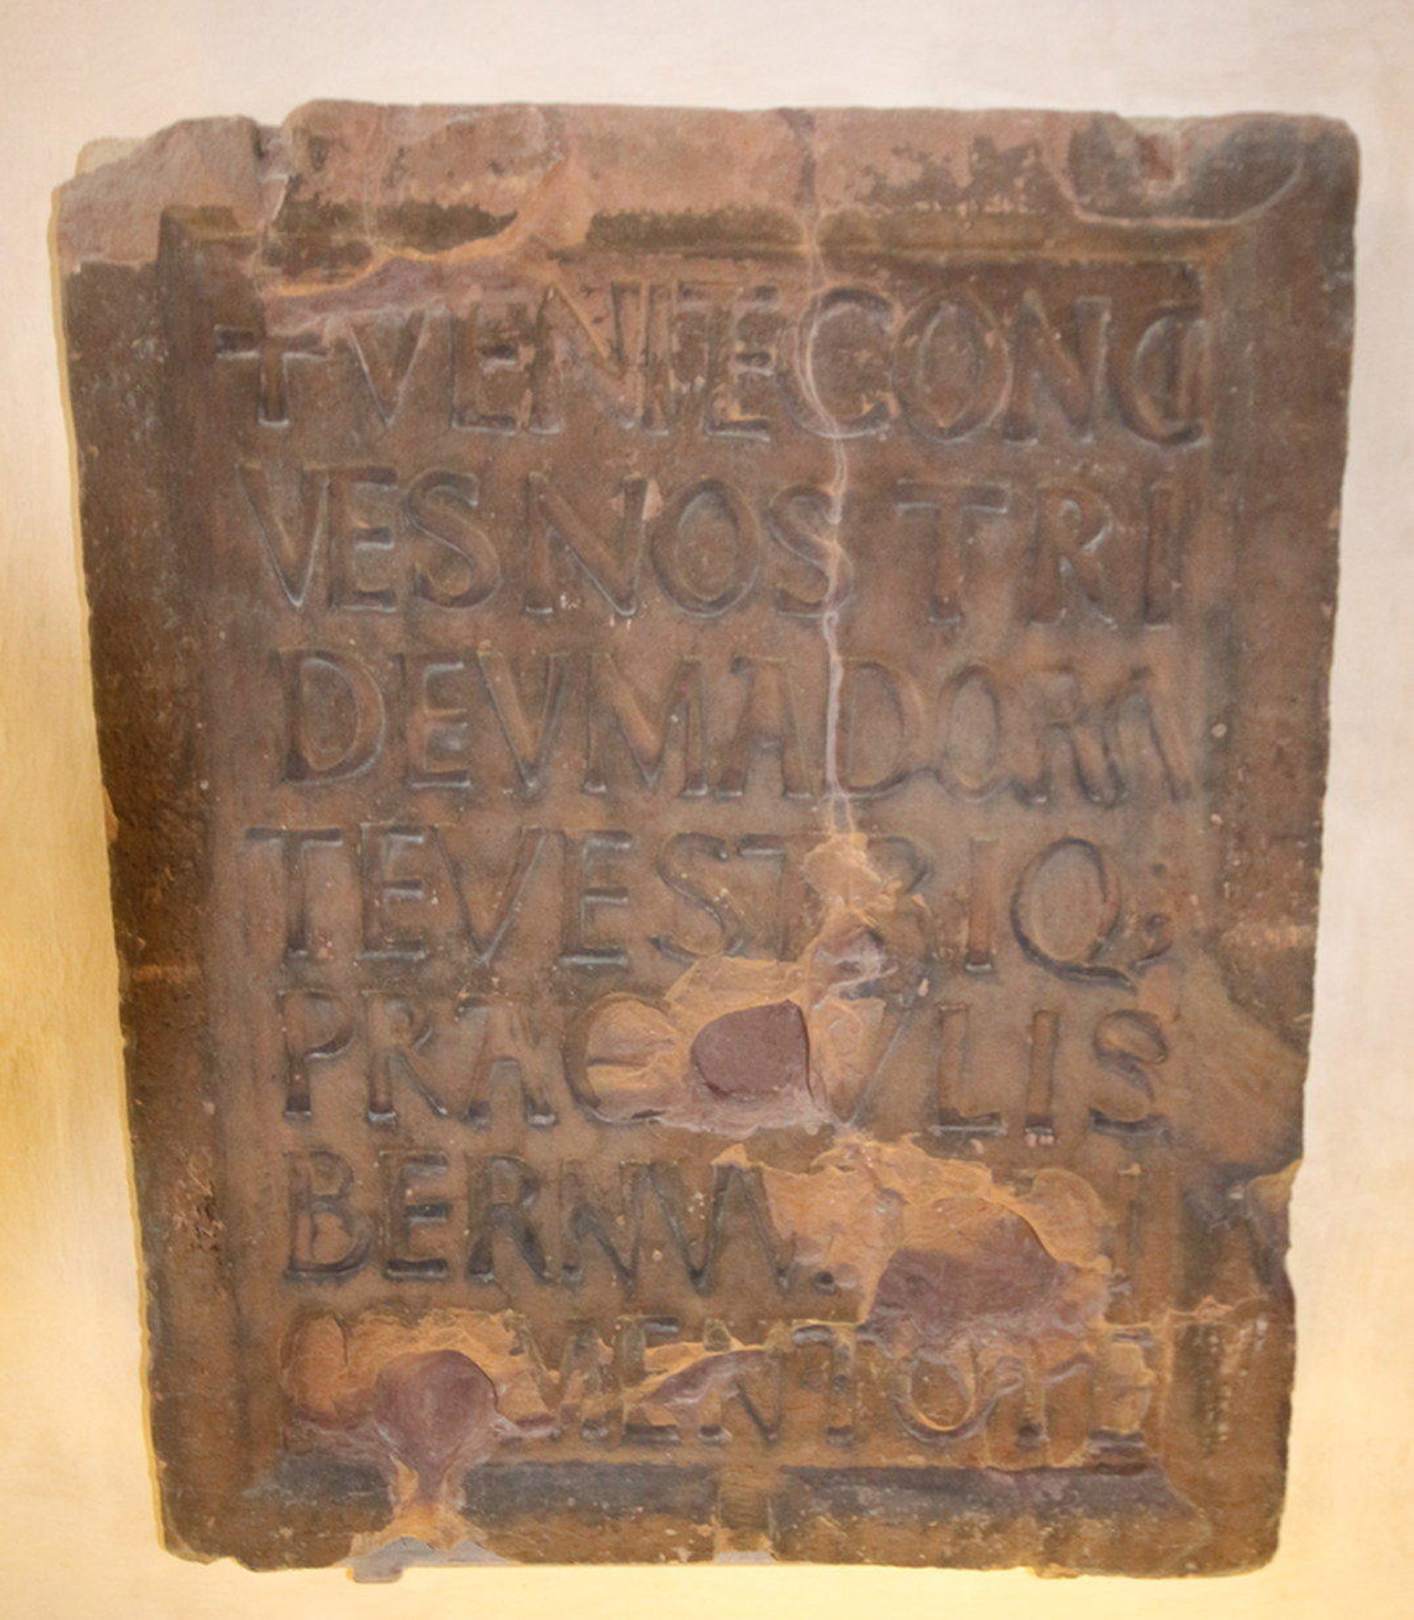 + VENITE CONCI
VES NOSTRI
DEVM ADORA
TE VESTRIQ;
PRAE VLIS
BERNVVA I
MENTOTE